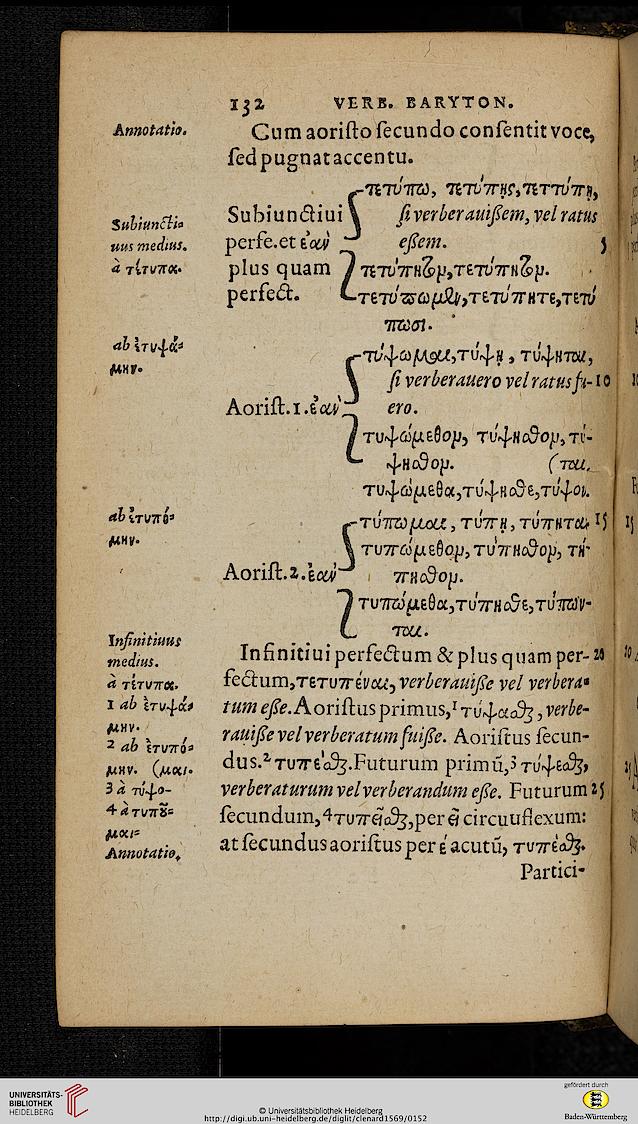 132 VERB. BARYTON.
Annotatio.
Cum aoristo secundo consentit voce,
sed pugnat accentu.
Subiunctiuus medius.
à τέτυπα.
Subiunctiui
perfe. et ἐὰν
plus quam
perfect.
τετύπω, τετύπῃς, τετύπῃ,
si verberauißem, vel ratus
eßem. 5
τετύπητον, τετύπητον.
τετύπωμεν, τετύπητε, τετύ
πωσι.
ab ἐτυψά=
μην.
Aorist. 1. ἐὰν
τύψωμαι, τύψῃ, τύψηται,
si verberauero vel ratus fu- 10
ero.
τυψώμεθον, τύψησθον, τύ-
ψησθον. (ται.
τυψώμεθα, τύψησθε, τύψον.
ab ἐτυπό=
μην.
Aorist. 2. ἐὰν
τύπωμαι, τύπῃ, τύπηται. 15
τυπώμεθον, τύπησθον, τύ-
πησθον.
τυπώμεθα, τύπησθε, τύπων-
ται.
Infinitiuus
medius.
à τέτυπα.
1 ab ἐτυψά=
μην.
2 ab ἐτυπό=
μην. (μαι.
3 à τύψο-
4 à τυποῦ=
μαι=
Annotatio.
Infinitiui perfectum & plus quam per- 20
fectum, τετυπέναι, verberauiße vel verbera=
tum eße. Aoristus primus, 1 τύψασθαι, verbe-
rauiße vel verberatum fuiße. Aoristus secun-
dus. 2 τυπέσθαι. Futurum primū, 3 τύψεσθαι,
verberaturum vel verberandum eße. Futurum 25
secundum, 4 τυπεῖσθαι, per εῖ circuuflexum:
at secundus aoristus per έ acutū, τυπέσθαι.
Partici-
UNIVERSITÄTS-
BIBLIOTHEK
HEIDELBERG
© Universitätsbibliothek Heidelberg
http://digi.ub.uni-heidelberg.de/diglit/clenard1569/0152
gefördert durch
Baden-Württemberg